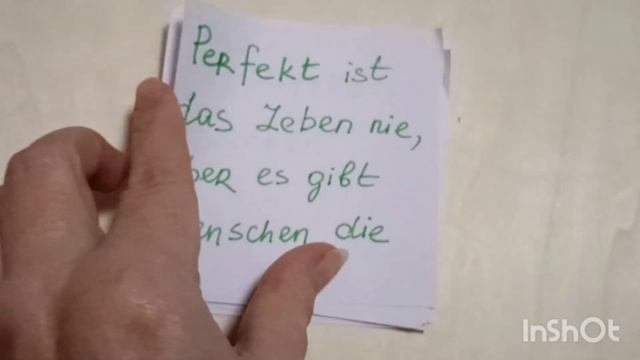 Perfekt ist
das Leben nie,
ber es gibt
enschen die
InShOt